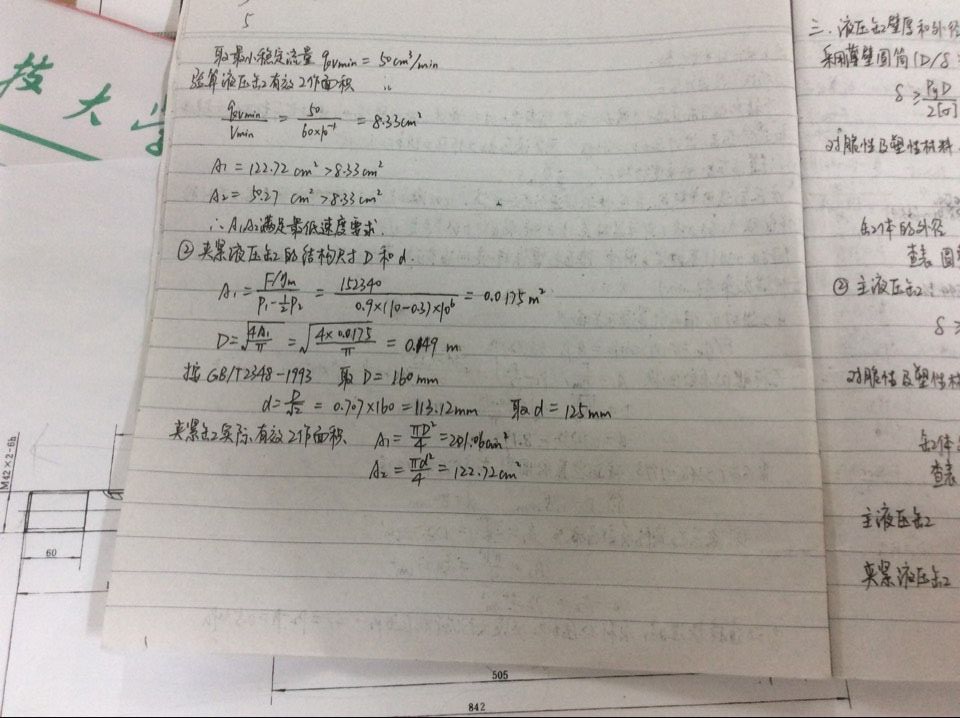 5
取最小稳定流量 qvmin = 50cm³/min
验算液压缸有效工作面积
qvmin/Vmin = 50/60×10⁻¹ = 8.33cm²
A1 = 122.72 cm² > 8.33cm²
A2 = 50.27 cm² > 8.33cm²
∴ A1A2满足最低速度要求.
② 夹紧液压缸的结构尺寸 D 和 d.
A1 = F/ηm / P1-½P2 = 152340 / 0.9×(10-0.3)×10⁶ = 0.0175 m²
D = √4A1/π = √4×0.0175/π = 0.149 m
按 GB/T2348-1993 取 D = 160mm
d = D/√2 = 0.707×160 = 113.12mm 取 d = 125mm
夹紧缸实际有效工作面积 A1 = πD²/4 = 201.06cm².
A2 = πd²/4 = 122.72cm²
三. 液压缸壁厚和外径
采用薄壁圆筒 (D/δ ≥
δ ≥ PyD/2[σ]
对脆性及塑性材料
缸体的外径
查表 圆
② 主液压缸:
δ ≥
对脆性及塑性材
缸体
查表
主液压缸
夹紧液压缸
技大学
M42×2-6h
60
505
842